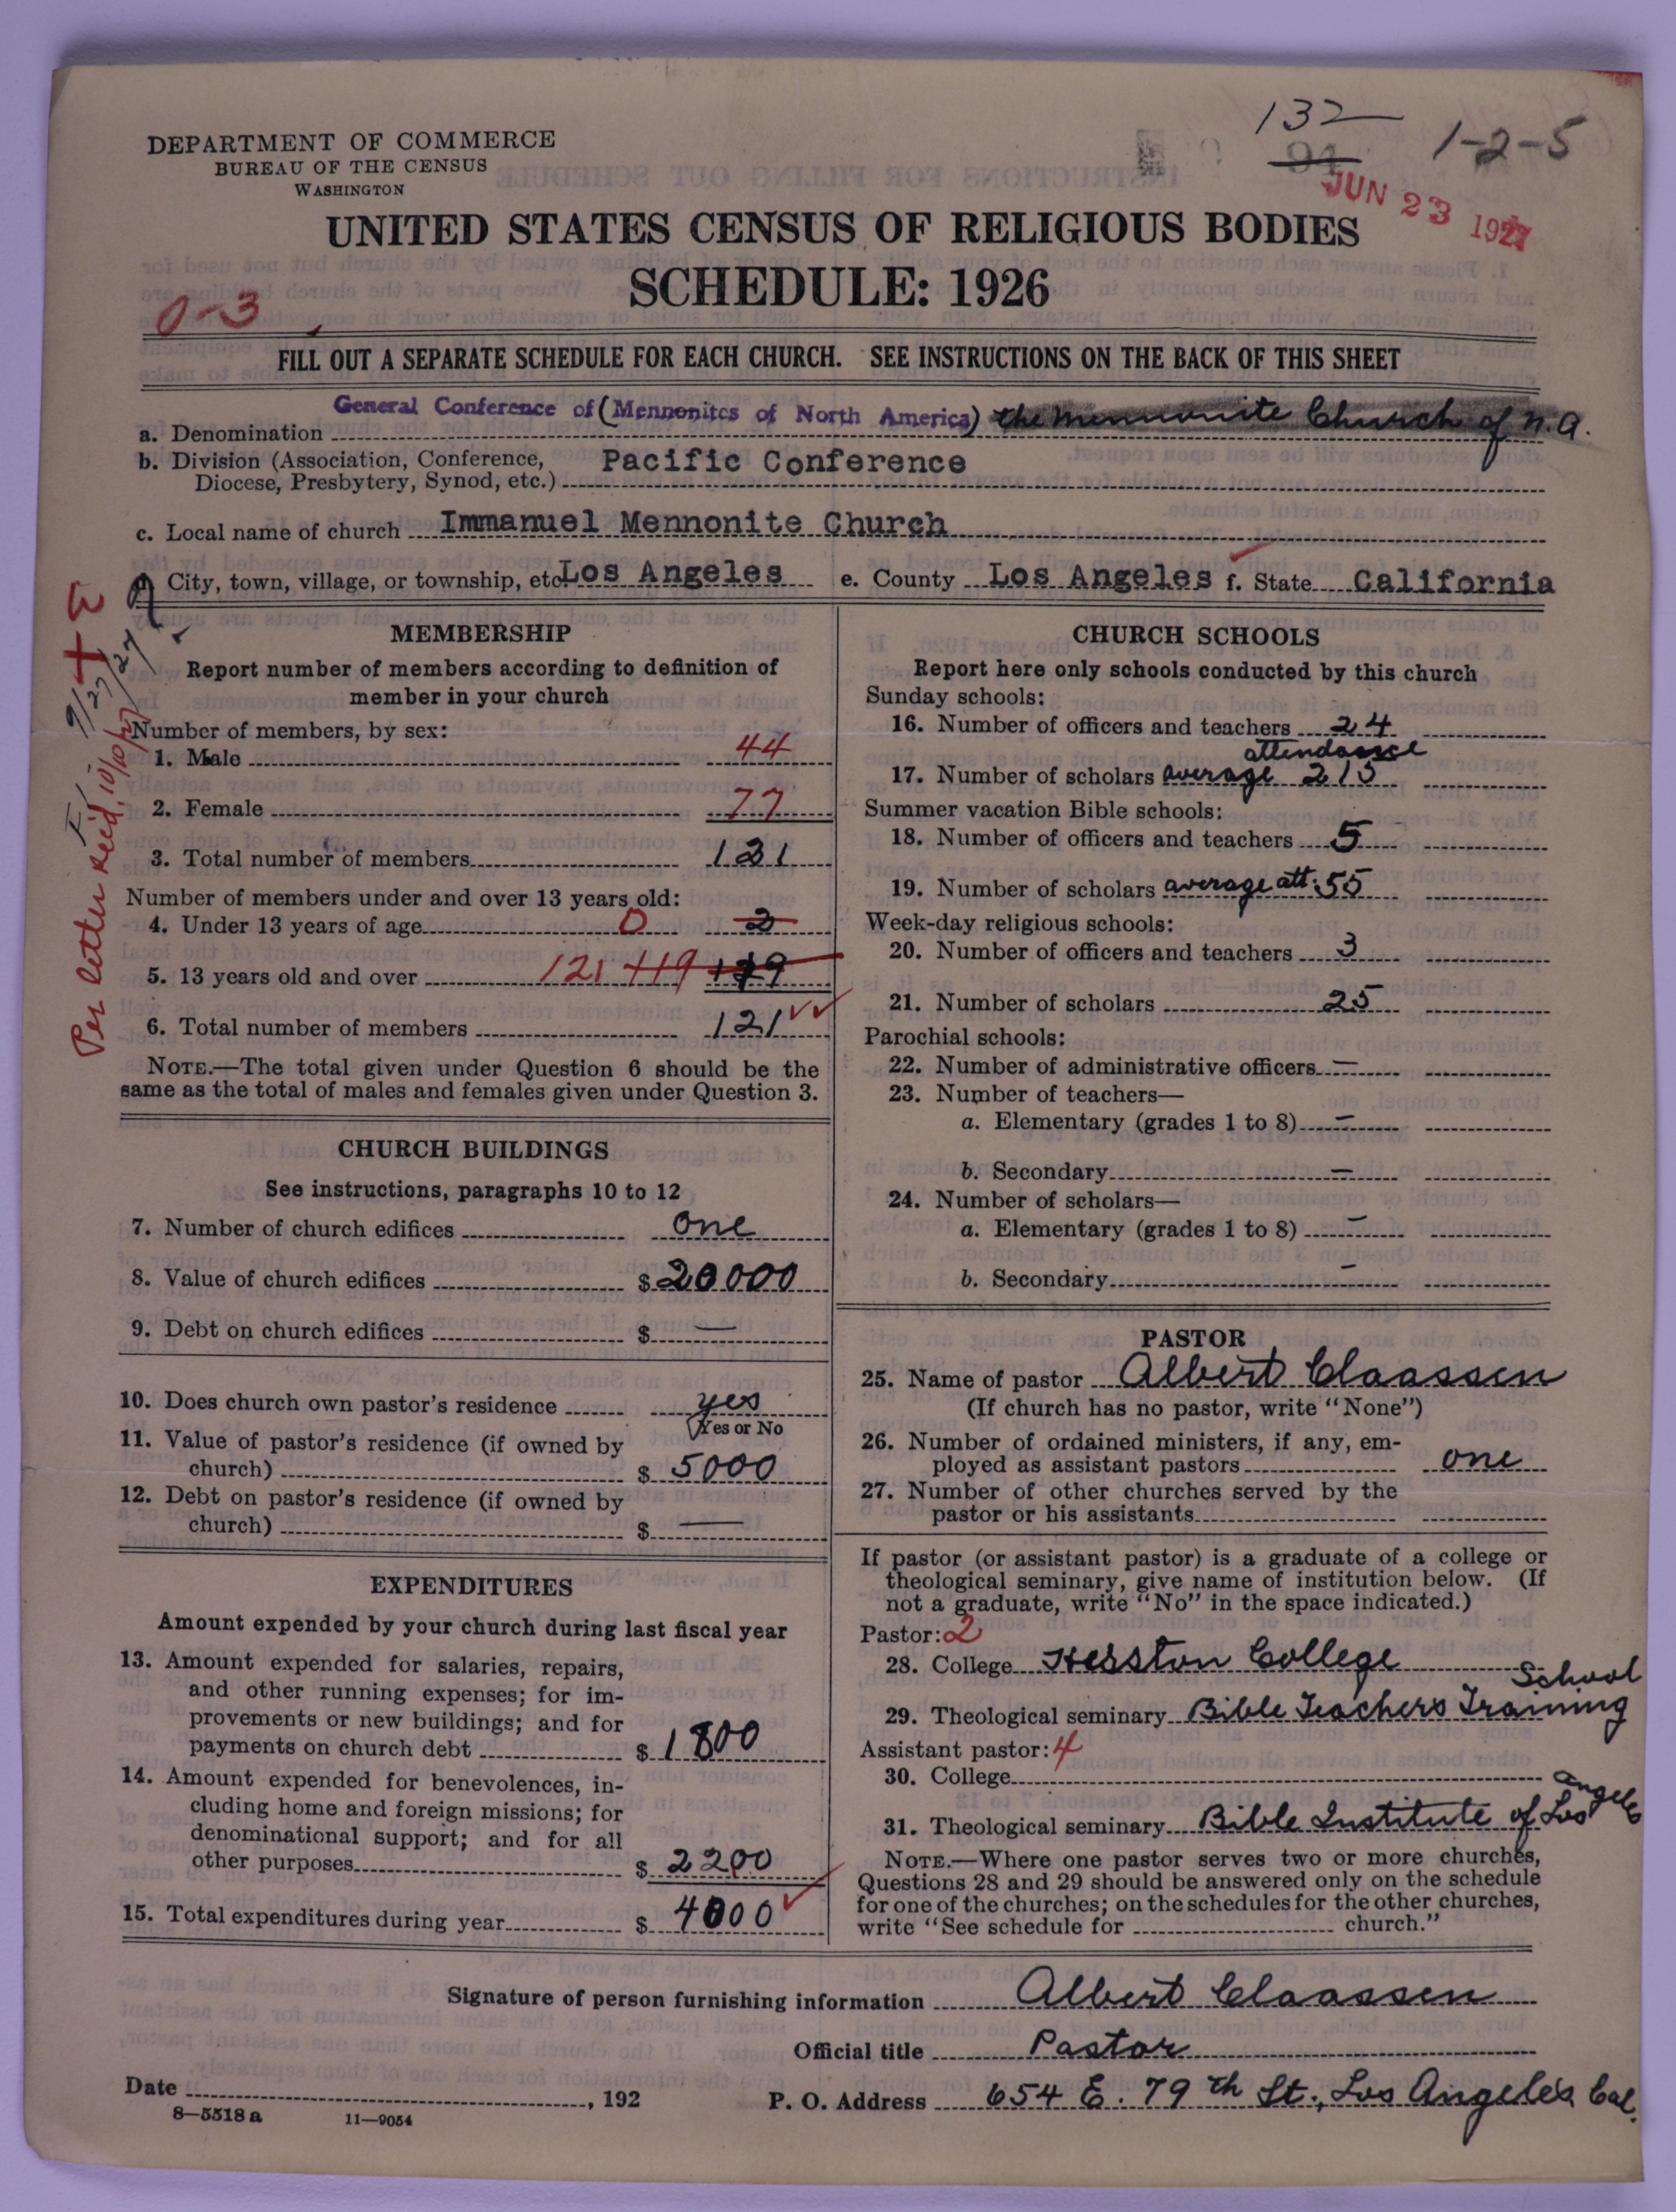 132
1-2-5
94
JUN 23 1927
DEPARTMENT OF COMMERCE
BUREAU OF THE CENSUS
WASHINGTON
UNITED STATES CENSUS OF RELIGIOUS BODIES
SCHEDULE: 1926
0-3
FILL OUT A SEPARATE SCHEDULE FOR EACH CHURCH. SEE INSTRUCTIONS ON THE BACK OF THIS SHEET
a. Denomination General Conference of (Mennonites of North America) the Mennonite Church of N.A.
b. Division (Association, Conference, Diocese, Presbytery, Synod, etc.) Pacific Conference
c. Local name of church Immanuel Mennonite Church
City, town, village, or township, etc Los Angeles e. County Los Angeles f. State California
9/27/27
Per letter rec'd, 10/10/27
MEMBERSHIP
Report number of members according to definition of
member in your church
Number of members, by sex:
1. Male 44
2. Female 77
3. Total number of members 121
Number of members under and over 13 years old:
4. Under 13 years of age 0 2
5. 13 years old and over 121 119 119
6. Total number of members 121
NOTE.—The total given under Question 6 should be the
same as the total of males and females given under Question 3.
CHURCH BUILDINGS
See instructions, paragraphs 10 to 12
7. Number of church edifices one
8. Value of church edifices $20000
9. Debt on church edifices $ —
10. Does church own pastor's residence yes
(Yes or No
11. Value of pastor's residence (if owned by
church) $ 5000
12. Debt on pastor's residence (if owned by
church) $ —
EXPENDITURES
Amount expended by your church during last fiscal year
13. Amount expended for salaries, repairs,
and other running expenses; for im-
provements or new buildings; and for
payments on church debt $ 1800
14. Amount expended for benevolences, in-
cluding home and foreign missions; for
denominational support; and for all
other purposes $ 2200
15. Total expenditures during year $ 4000
CHURCH SCHOOLS
Report here only schools conducted by this church
Sunday schools:
16. Number of officers and teachers 24
attendance
17. Number of scholars average 215
Summer vacation Bible schools:
18. Number of officers and teachers 5
19. Number of scholars average att. 55
Week-day religious schools:
20. Number of officers and teachers 3
21. Number of scholars 25
Parochial schools:
22. Number of administrative officers =
23. Number of teachers—
a. Elementary (grades 1 to 8) =
b. Secondary =
24. Number of scholars—
a. Elementary (grades 1 to 8) —
b. Secondary —
PASTOR
25. Name of pastor Albert Claassen
(If church has no pastor, write "None")
26. Number of ordained ministers, if any, em-
ployed as assistant pastors one
27. Number of other churches served by the
pastor or his assistants
If pastor (or assistant pastor) is a graduate of a college or
theological seminary, give name of institution below. (If
not a graduate, write "No" in the space indicated.)
Pastor: 2
28. College Hesston College
School
29. Theological seminary Bible Teachers Training
Assistant pastor: 4
30. College
31. Theological seminary Bible Institute of Los Angeles
NOTE.—Where one pastor serves two or more churches,
Questions 28 and 29 should be answered only on the schedule
for one of the churches; on the schedules for the other churches,
write "See schedule for church."
Signature of person furnishing information Albert Claassen
Official title Pastor
Date , 192
P. O. Address 654 E. 79th St., Los Angeles Cal.
8—5518a 11—9054